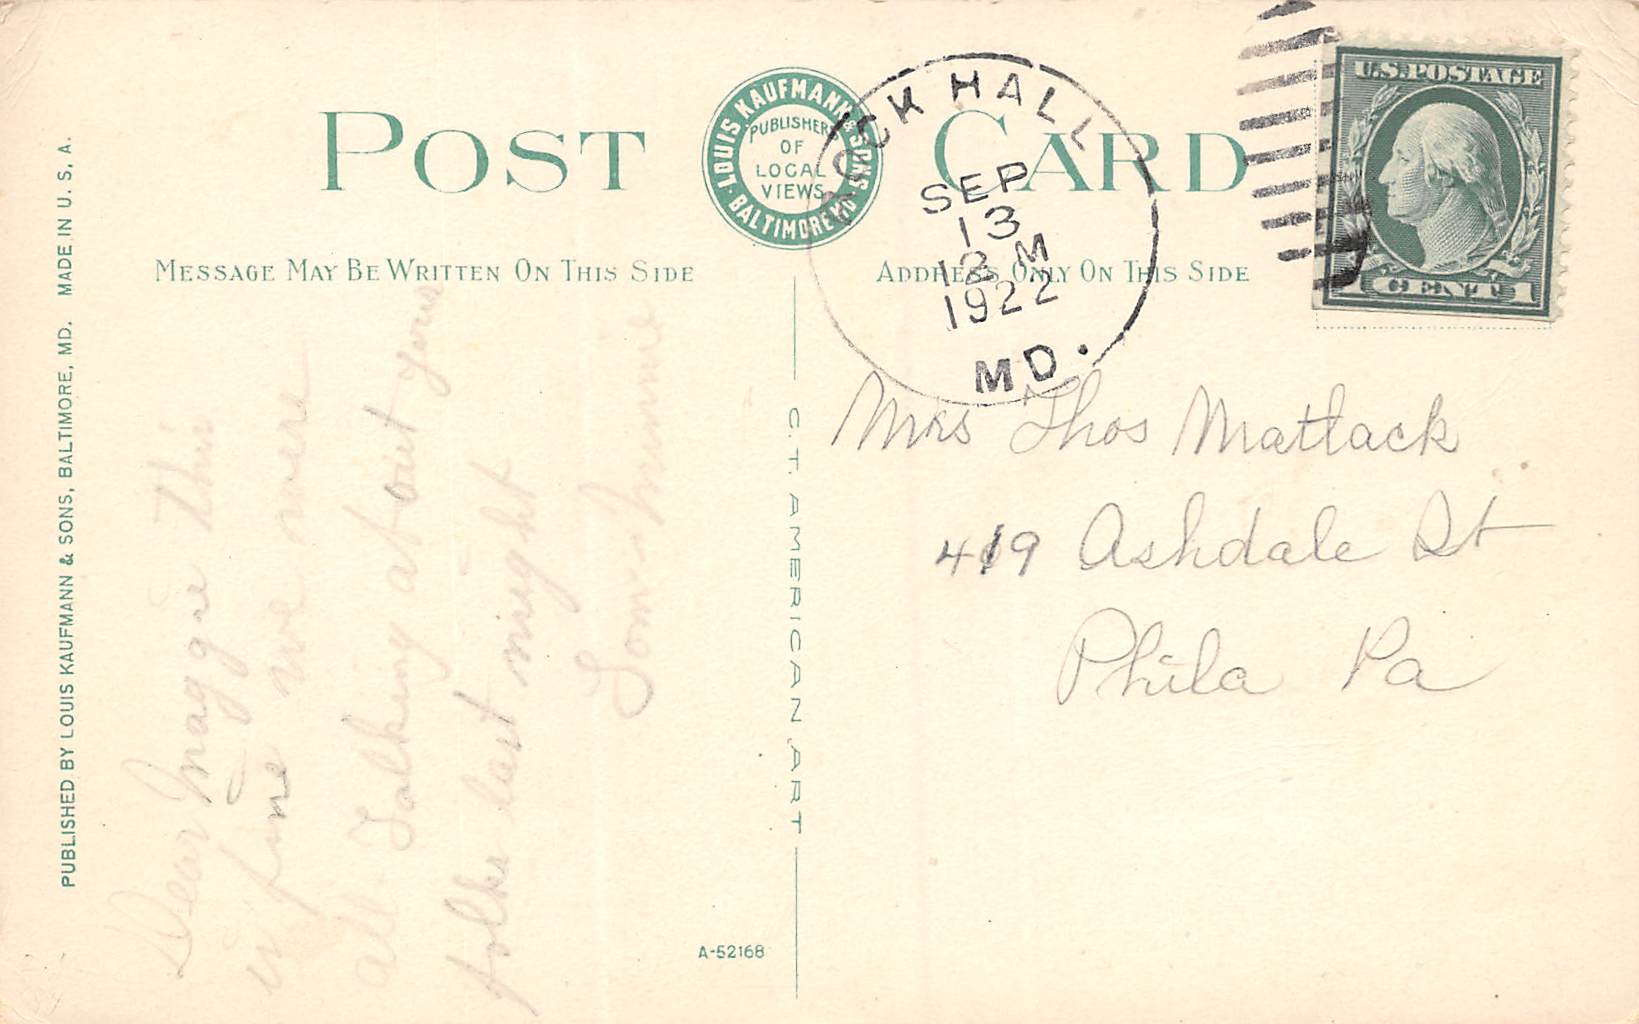 POST CARD
LOUIS KAUFMANN & SONS
BALTIMORE MD.
PUBLISHER
OF
LOCAL
VIEWS
ROCK HALL
SEP
13
12 M
1922
MD.
U.S. POSTAGE
1 CENT 1
MESSAGE MAY BE WRITTEN ON THIS SIDE
ADDRESS ONLY ON THIS SIDE
PUBLISHED BY LOUIS KAUFMANN & SONS, BALTIMORE, MD. MADE IN U. S. A.
Dear Maggie This
is fine we were
all Talking about your
folks last night
C. T. AMERICAN ART
Mrs Thos Matlack
419 Ashdale St
Phila Pa
A-52168